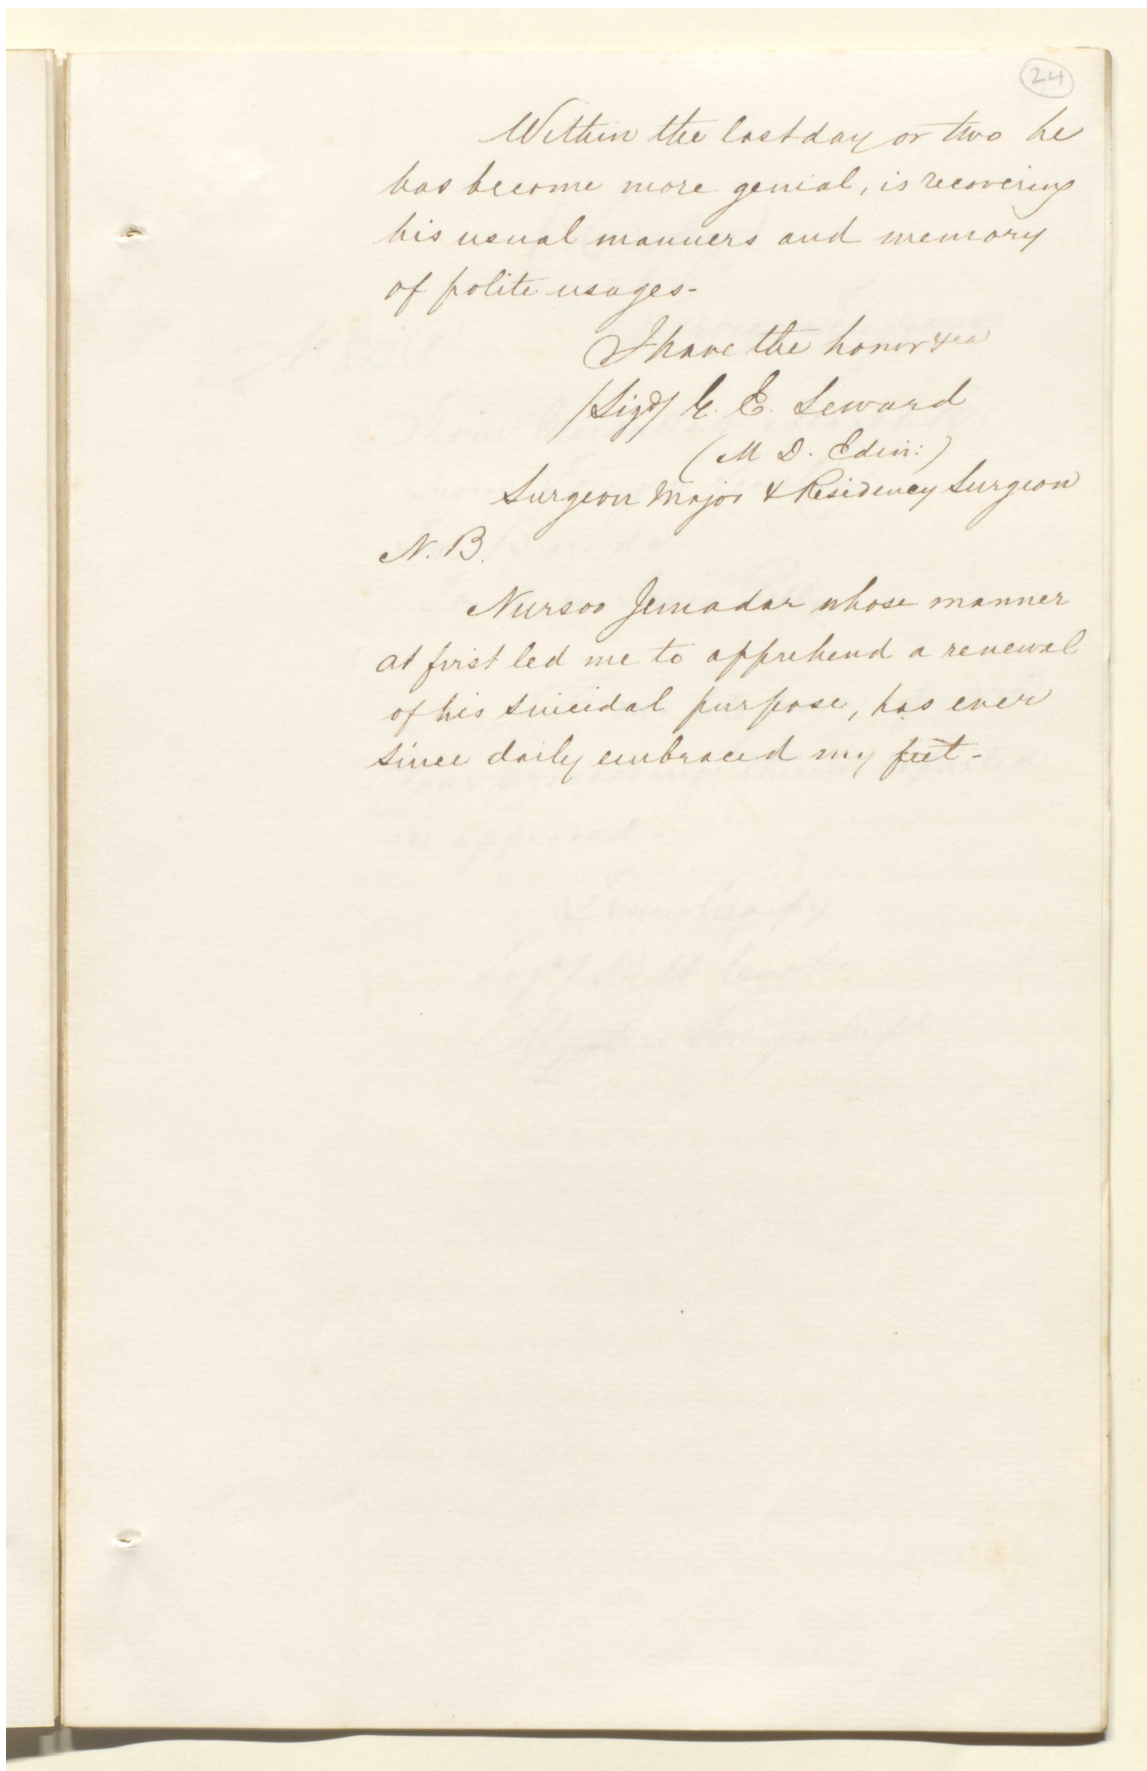 24
Within the last day or two he
has become more genial, is recovering
his usual manners and memory
of polite usages-
I have the honor &ca
/Sigd/ G. E. Seward
(M D. Edin:)
Surgeon Major & Residency Surgeon
N. B.
Nursoo Jemadar whose manner
at first led me to apprehend a renewal
of his suicidal purpose, has ever
since daily embraced my feet-